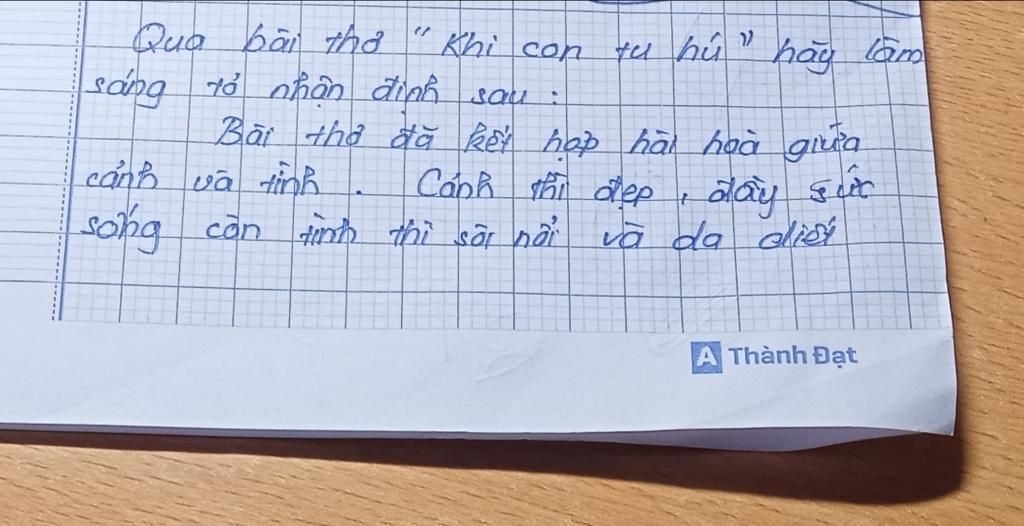 Qua bài thơ "Khi con tu hú" hãy làm
sáng tỏ nhận định sau :
Bài thơ đã kết hợp hài hoà giữa
cảnh và tình . Cảnh thì đẹp , đầy sức
sống còn tình thì sôi nổi và da diết
A Thành Đạt